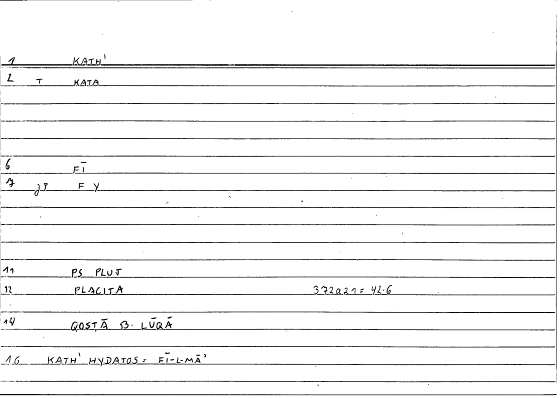 1 KATH'
2 T KATA
6 FĪ
7 jr F Y
11 PS PLUT
12 PLACITA 372a21 = 42.6
14 QOSṬĀ B. LŪQĀ
16 KATH' HYDATOS = FĪ-L-MĀ'